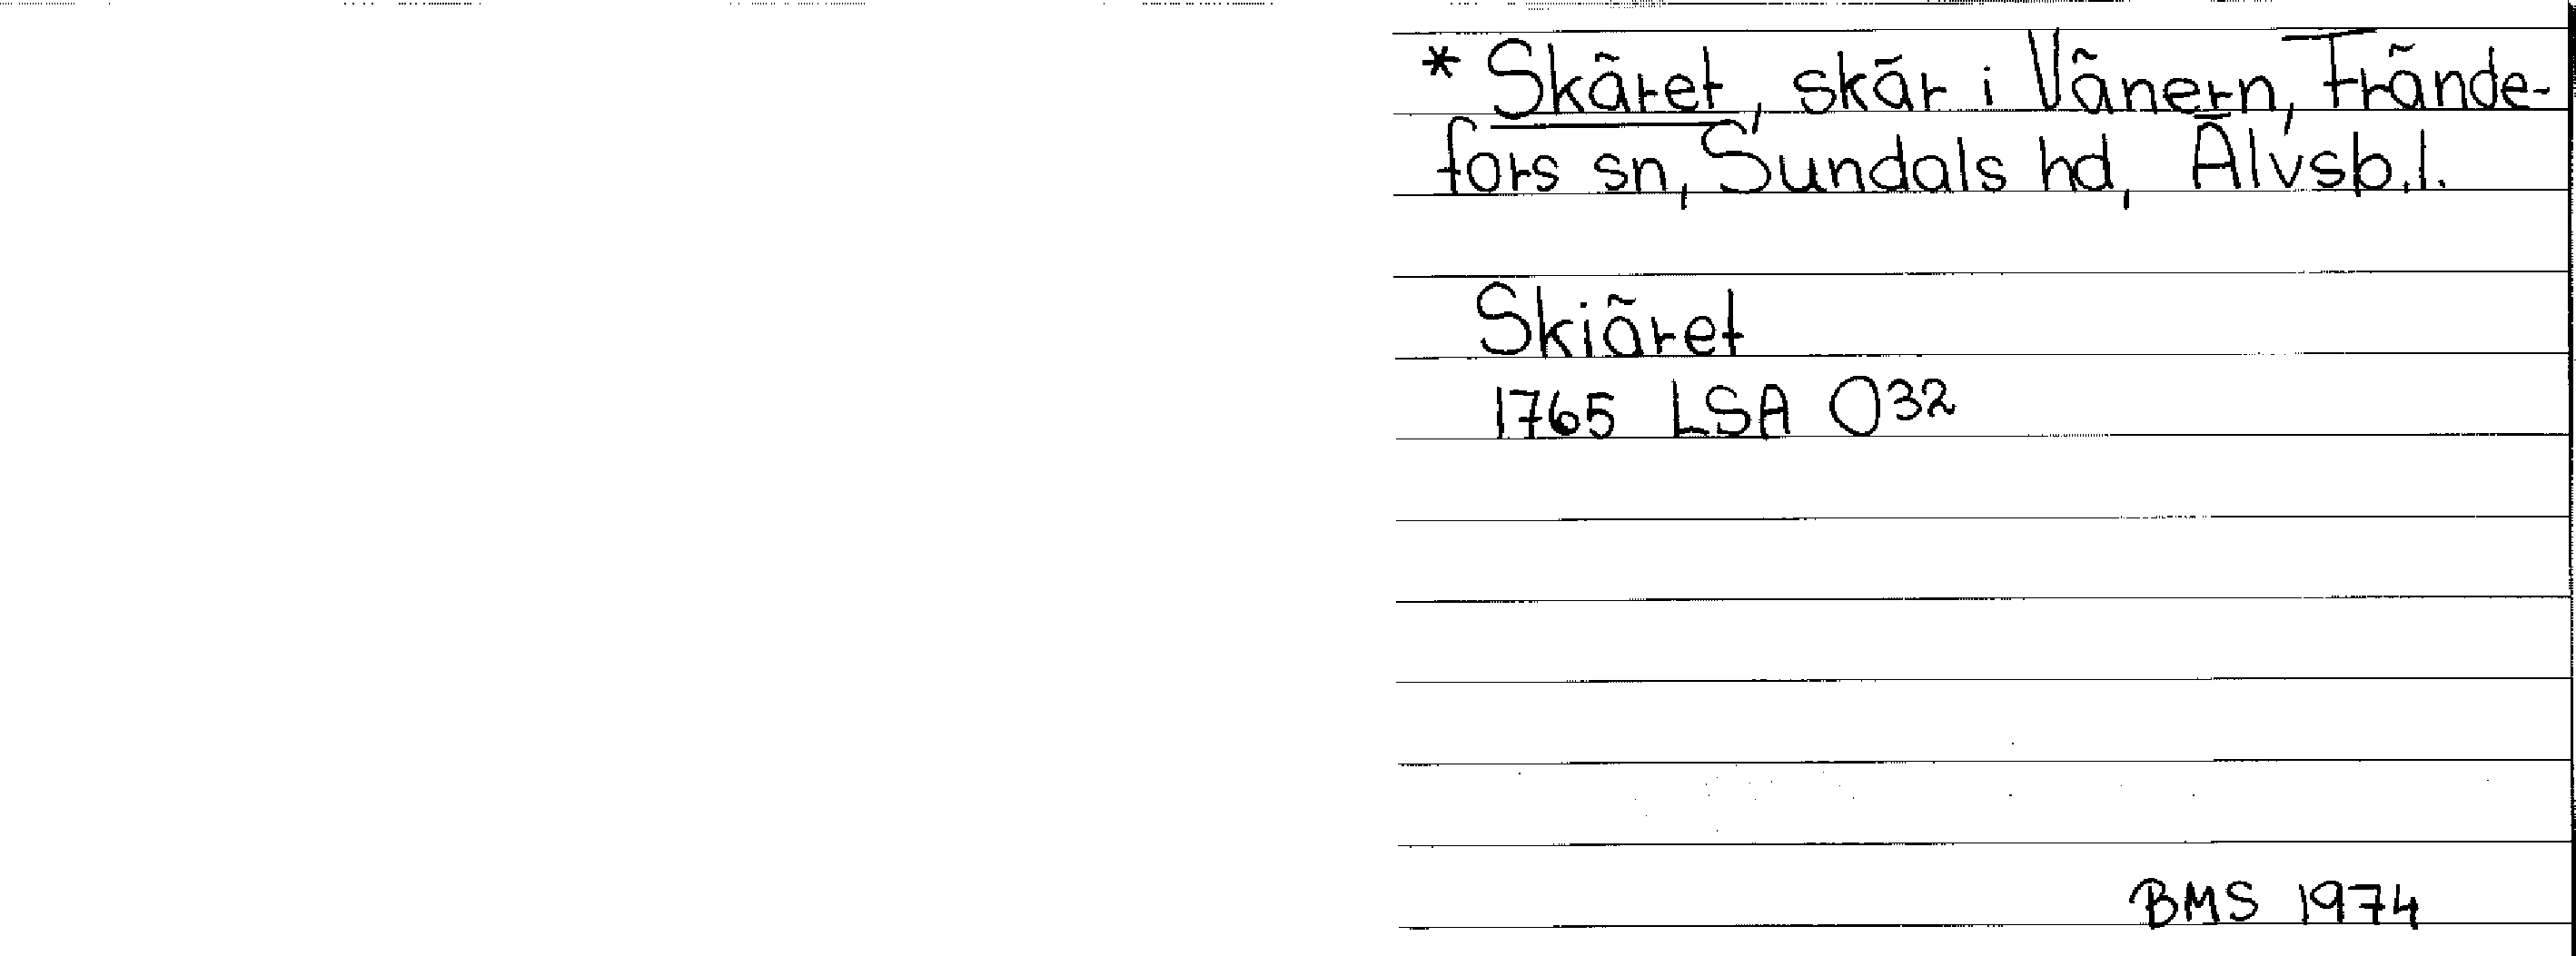 * Skäret, skär i Vänern, Frände-
fors sn, Sundals hd, Älvsb.l.
Skiäret
1765 LSA O32
BMS 1974